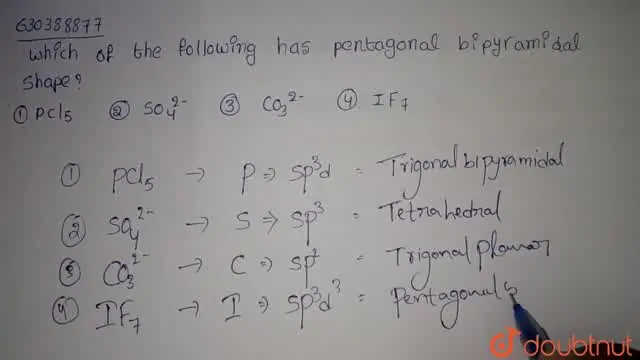 630388877
which of the following has pentagonal bipyramidal
shape?
① PCl5 ② SO4^2- ③ CO3^2- ④ IF7
① PCl5 → P ⇒ sp^3d = Trigonal bipyramidal
② SO4^2- → S ⇒ sp^3 = Tetrahedral
③ CO3^2- → C ⇒ sp^2 = Trigonal planar
④ IF7 → I ⇒ sp^3d^3 = pentagonal b
doubtnut